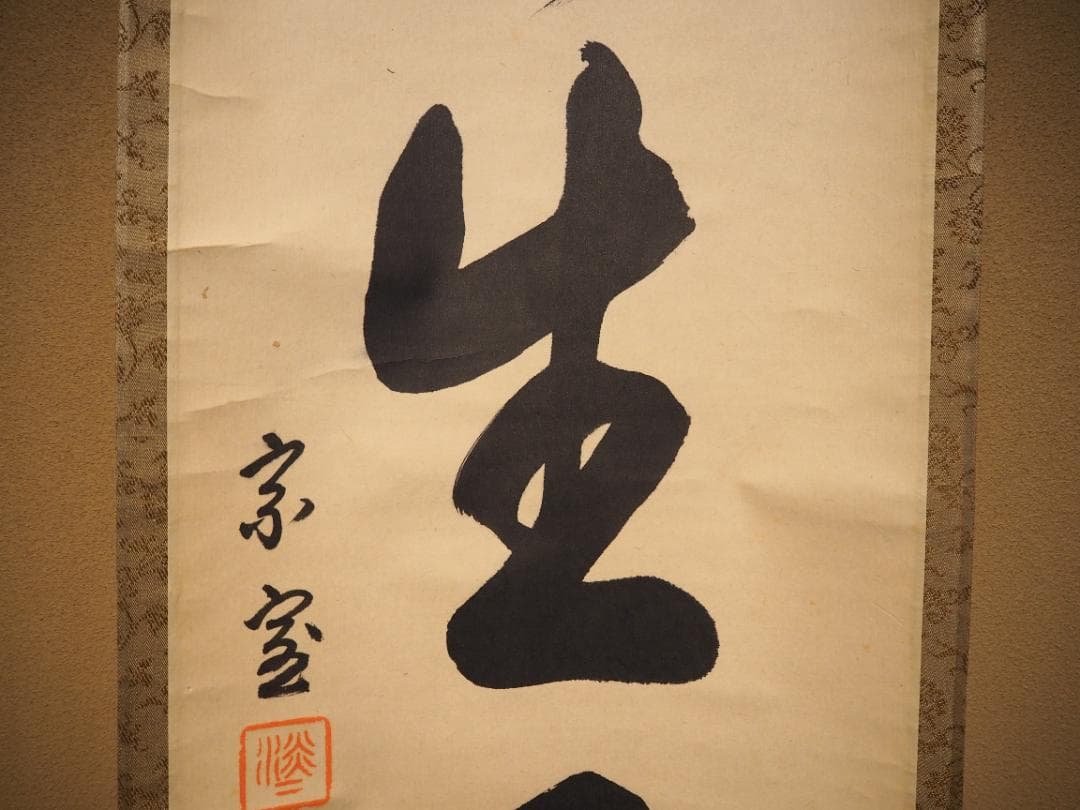 生
宗室